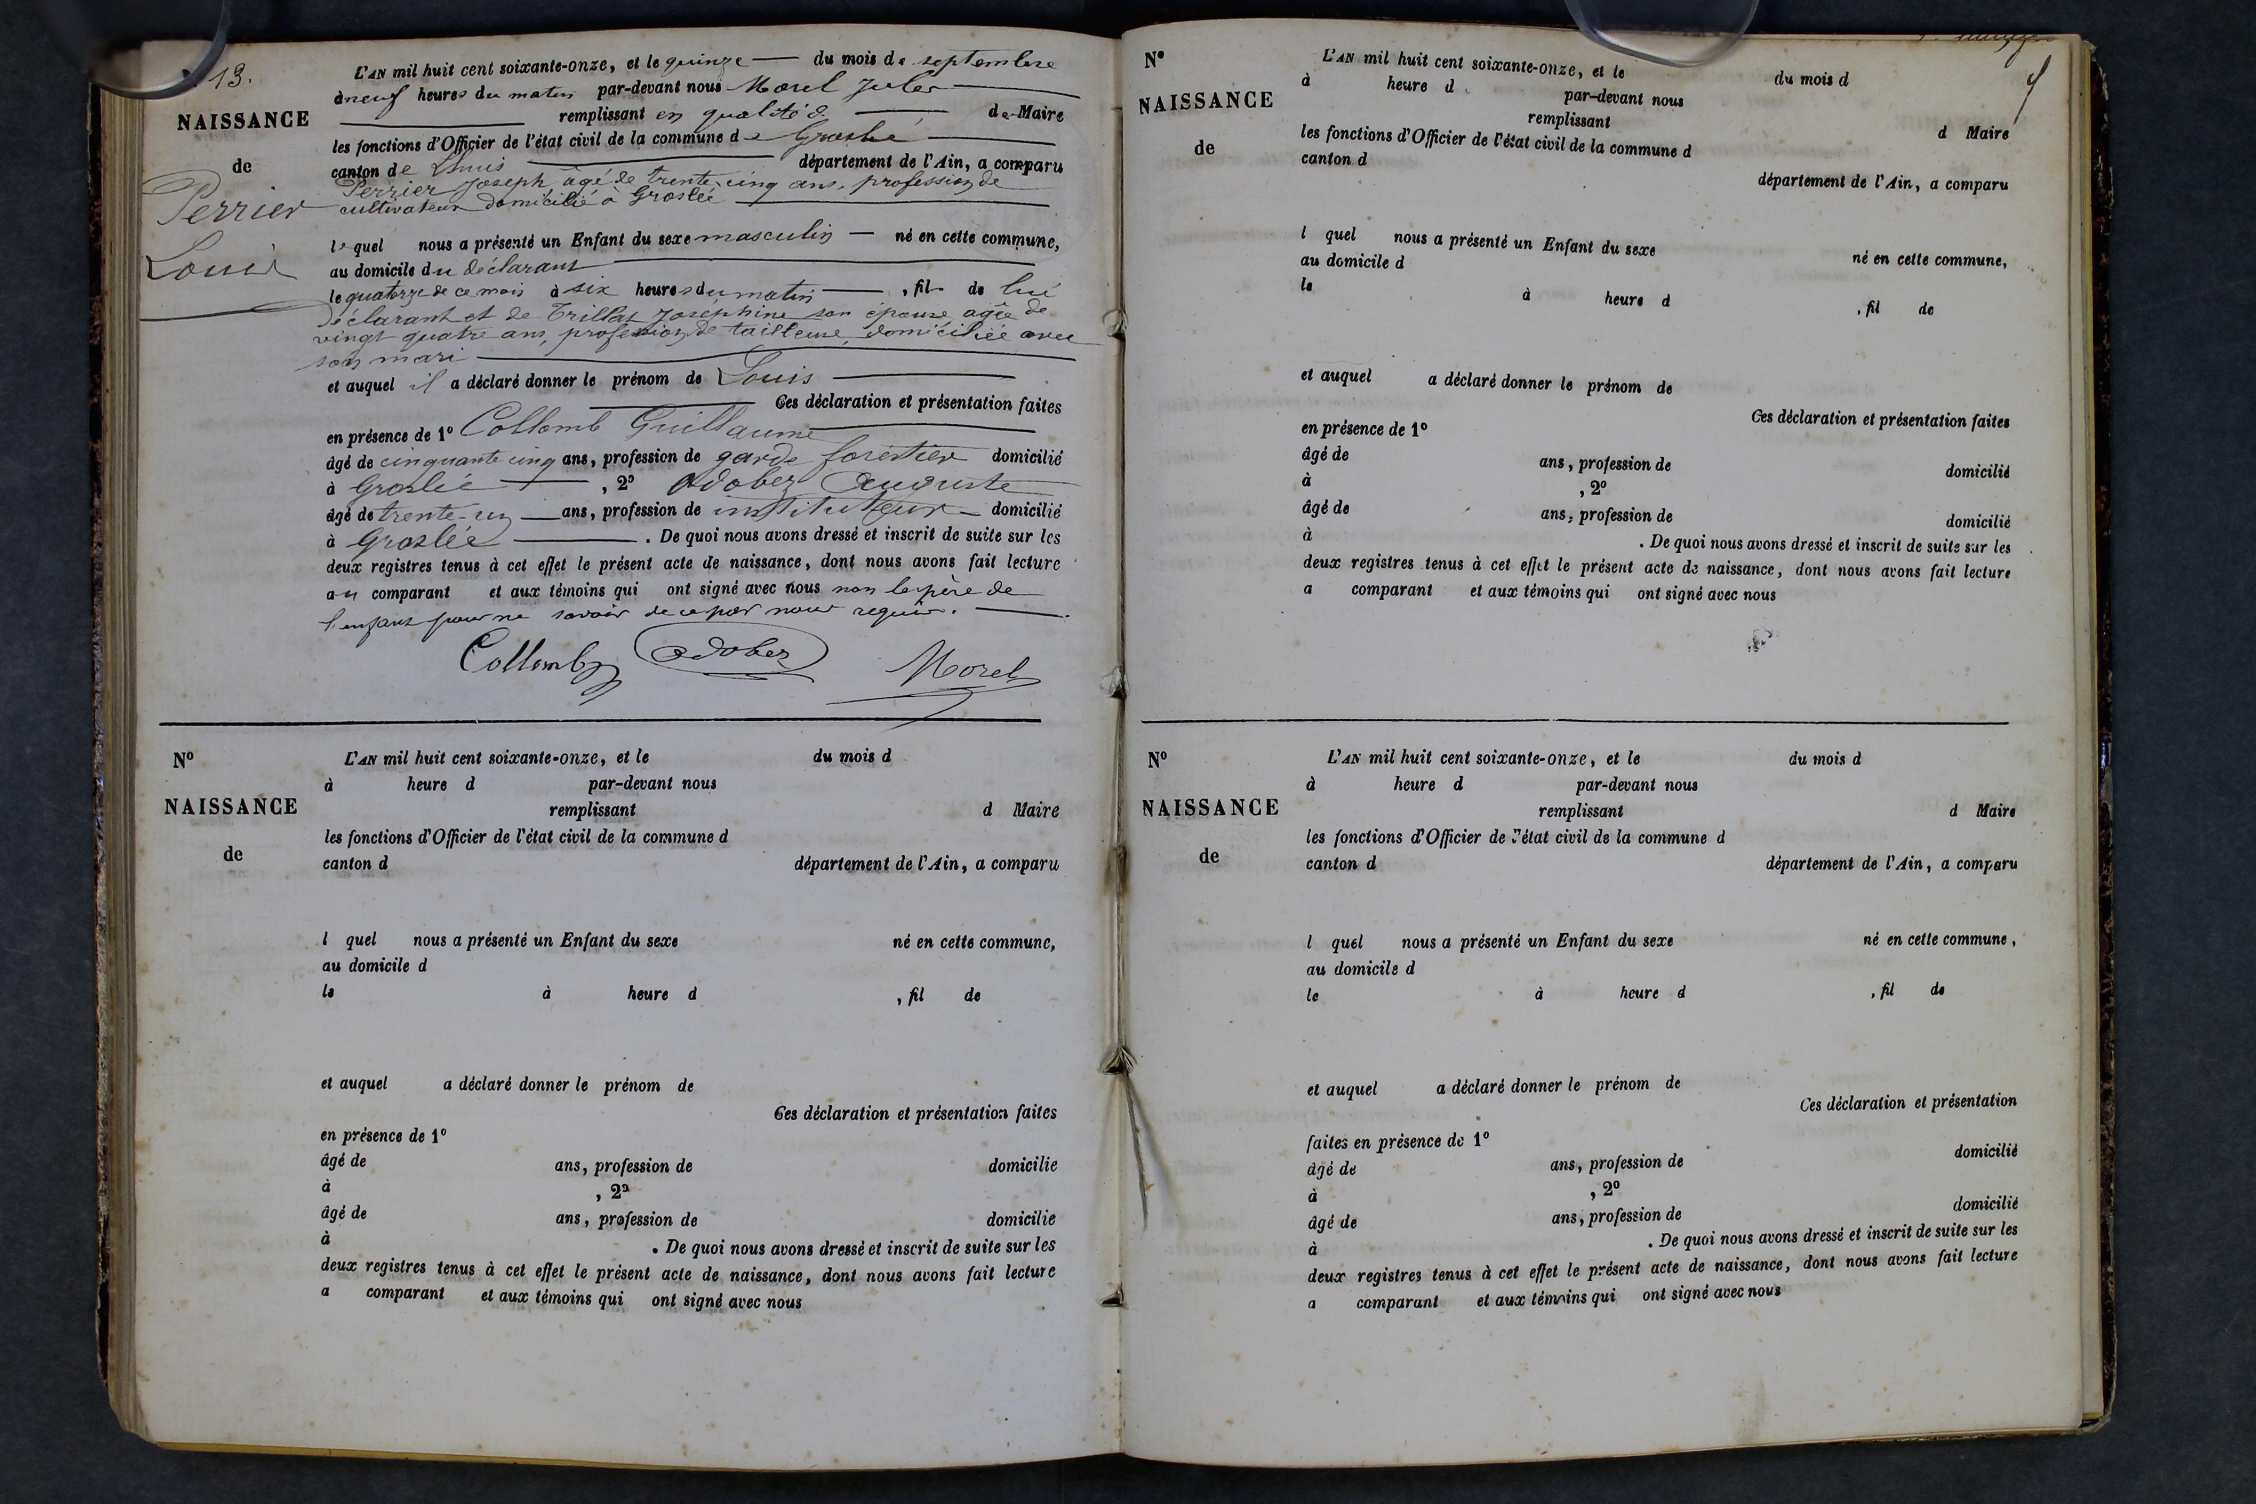 13.
NAISSANCE
de
Perrier
Louis
L'AN mil huit cent soixante-onze, et le quinze du mois de septembre
à neuf heures du matin par-devant nous Morel Jules
remplissant en qualité d de Maire
les fonctions d'Officier de l'état civil de la commune de Groslée
canton de Lhuis département de l'Ain, a comparu
Perrier Joseph âgé de trente-cinq ans, profession de
cultivateur domicilié à Groslée
lequel nous a présenté un Enfant du sexe masculin né en cette commune,
au domicile du déclarant
le quatorze de ce mois à six heures du matin, fil de lui
déclarant et de Trillat Josephine son épouse agée de
vingt quatre ans, profession de tailleuse, domiciliée avec
son mari
et auquel il a déclaré donner le prénom de Louis
Ces déclaration et présentation faites
en présence de 1º Collomb Guillaume
âgé de cinquante cinq ans, profession de garde forestier domicilié
à Groslée, 2º Adobez Auguste
âgé de trente-un ans, profession de instituteur domicilié
à Groslée. De quoi nous avons dressé et inscrit de suite sur les
deux registres tenus à cet effet le présent acte de naissance, dont nous avons fait lecture
au comparant et aux témoins qui ont signé avec nous non le père de
l'enfant pour ne savoir de ce par nous requis.
Collomb Adobez Morel
Nº
NAISSANCE
de
L'AN mil huit cent soixante-onze, et le du mois d
à heure d par-devant nous
remplissant d Maire
les fonctions d'Officier de l'état civil de la commune d
canton d département de l'Ain, a comparu
l quel nous a présenté un Enfant du sexe né en cette commune,
au domicile d
le à heure d , fil de
et auquel a déclaré donner le prénom de
Ces déclaration et présentation faites
en présence de 1º
âgé de ans, profession de domicilié
à , 2º
âgé de ans, profession de domicilié
à . De quoi nous avons dressé et inscrit de suite sur les
deux registres tenus à cet effet le présent acte de naissance, dont nous avons fait lecture
a comparant et aux témoins qui ont signé avec nous
Nº
NAISSANCE
de
L'AN mil huit cent soixante-onze, et le du mois d
à heure d par-devant nous
remplissant d Maire
les fonctions d'Officier de l'état civil de la commune d
canton d
département de l'Ain, a comparu
l quel nous a présenté un Enfant du sexe né en cette commune,
au domicile d
le à heure d , fil de
et auquel a déclaré donner le prénom de
Ces déclaration et présentation faites
en présence de 1º
âgé de ans, profession de domicilié
à , 2º
âgé de ans, profession de domicilié
à . De quoi nous avons dressé et inscrit de suite sur les
deux registres tenus à cet effet le présent acte de naissance, dont nous avons fait lecture
a comparant et aux témoins qui ont signé avec nous
Nº
NAISSANCE
de
L'AN mil huit cent soixante-onze, et le du mois d
à heure d par-devant nous
remplissant d Maire
les fonctions d'Officier de l'état civil de la commune d
canton d département de l'Ain, a comparu
l quel nous a présenté un Enfant du sexe né en cette commune,
au domicile d
le à heure d , fil de
et auquel a déclaré donner le prénom de
Ces déclaration et présentation
faites en présence de 1º
âgé de ans, profession de domicilié
à , 2º
âgé de ans, profession de domicilié
à . De quoi nous avons dressé et inscrit de suite sur les
deux registres tenus à cet effet le présent acte de naissance, dont nous avons fait lecture
a comparant et aux témoins qui ont signé avec nous